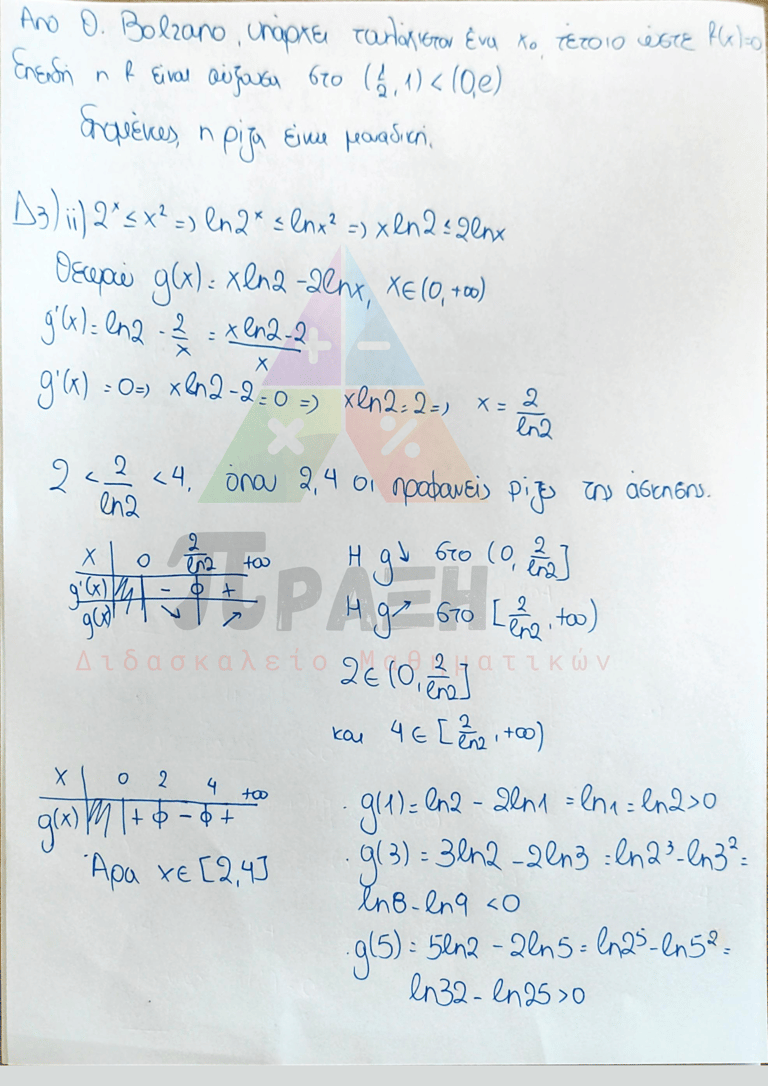 Από Θ. Bolzano, υπάρχει τουλάχιστον ένα x₀, τέτοιο ώστε f(x)=0
Επειδή η f είναι αύξουσα στο (1/2, 1) < (0,e)
Επομένως, η ρίζα είναι μοναδική.
Δ3) ii) 2ˣ ≤ x² => ln2ˣ ≤ lnx² => xln2 ≤ 2lnx
Θεωρώ g(x) = xln2 - 2lnx, x∈(0,+∞)
g'(x) = ln2 - 2/x = (xln2-2)/x
g'(x) = 0 => xln2-2=0 => xln2=2 => x = 2/ln2
2 < 2/ln2 < 4, όπου 2,4 οι προφανείς ρίζες της άσκησης.
x 0 2/ln2 +∞
g'(x) - φ +
g(x) ↘ ↗
Η g↘ στο (0, 2/ln2]
Η g↗ στο [2/ln2, +∞)
ΠΡΑΞΗ
Διδασκαλείο Μαθηματικών
2∈(0, 2/ln2]
και 4∈[2/ln2, +∞)
x 0 2 4 +∞
g(x) + φ - φ +
Άρα x∈[2,4]
. g(1) = ln2 - 2ln1 = ln1 = ln2>0
. g(3) = 3ln2 - 2ln3 = ln2³-ln3² =
ln8-ln9 <0
. g(5) = 5ln2 - 2ln5 = ln2⁵-ln5² =
ln32 - ln25>0